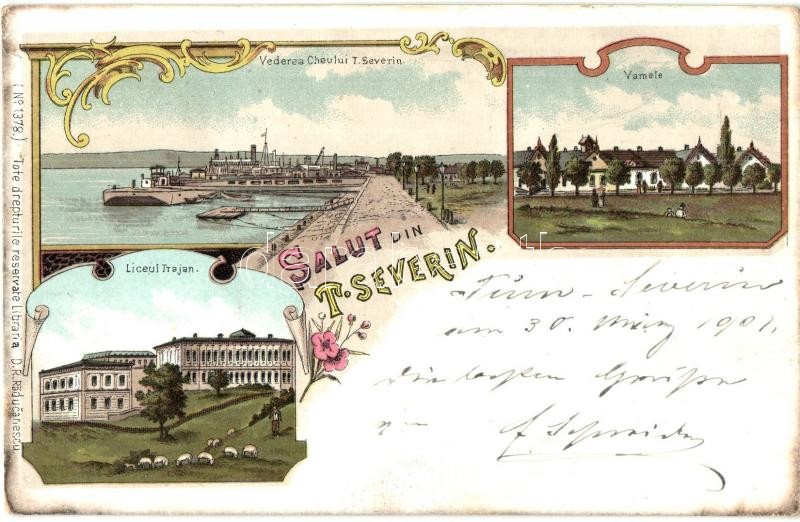 Vederea Cheului T. Severin.
Vamele
Liceul Trajan.
SALUT DIN
T. SEVERIN.
(Nº 1378.) Tote drepturile reservate Librăria D.R. Răducănescu
Turn-Severin
am 30. März 1901.
Die besten Grüße